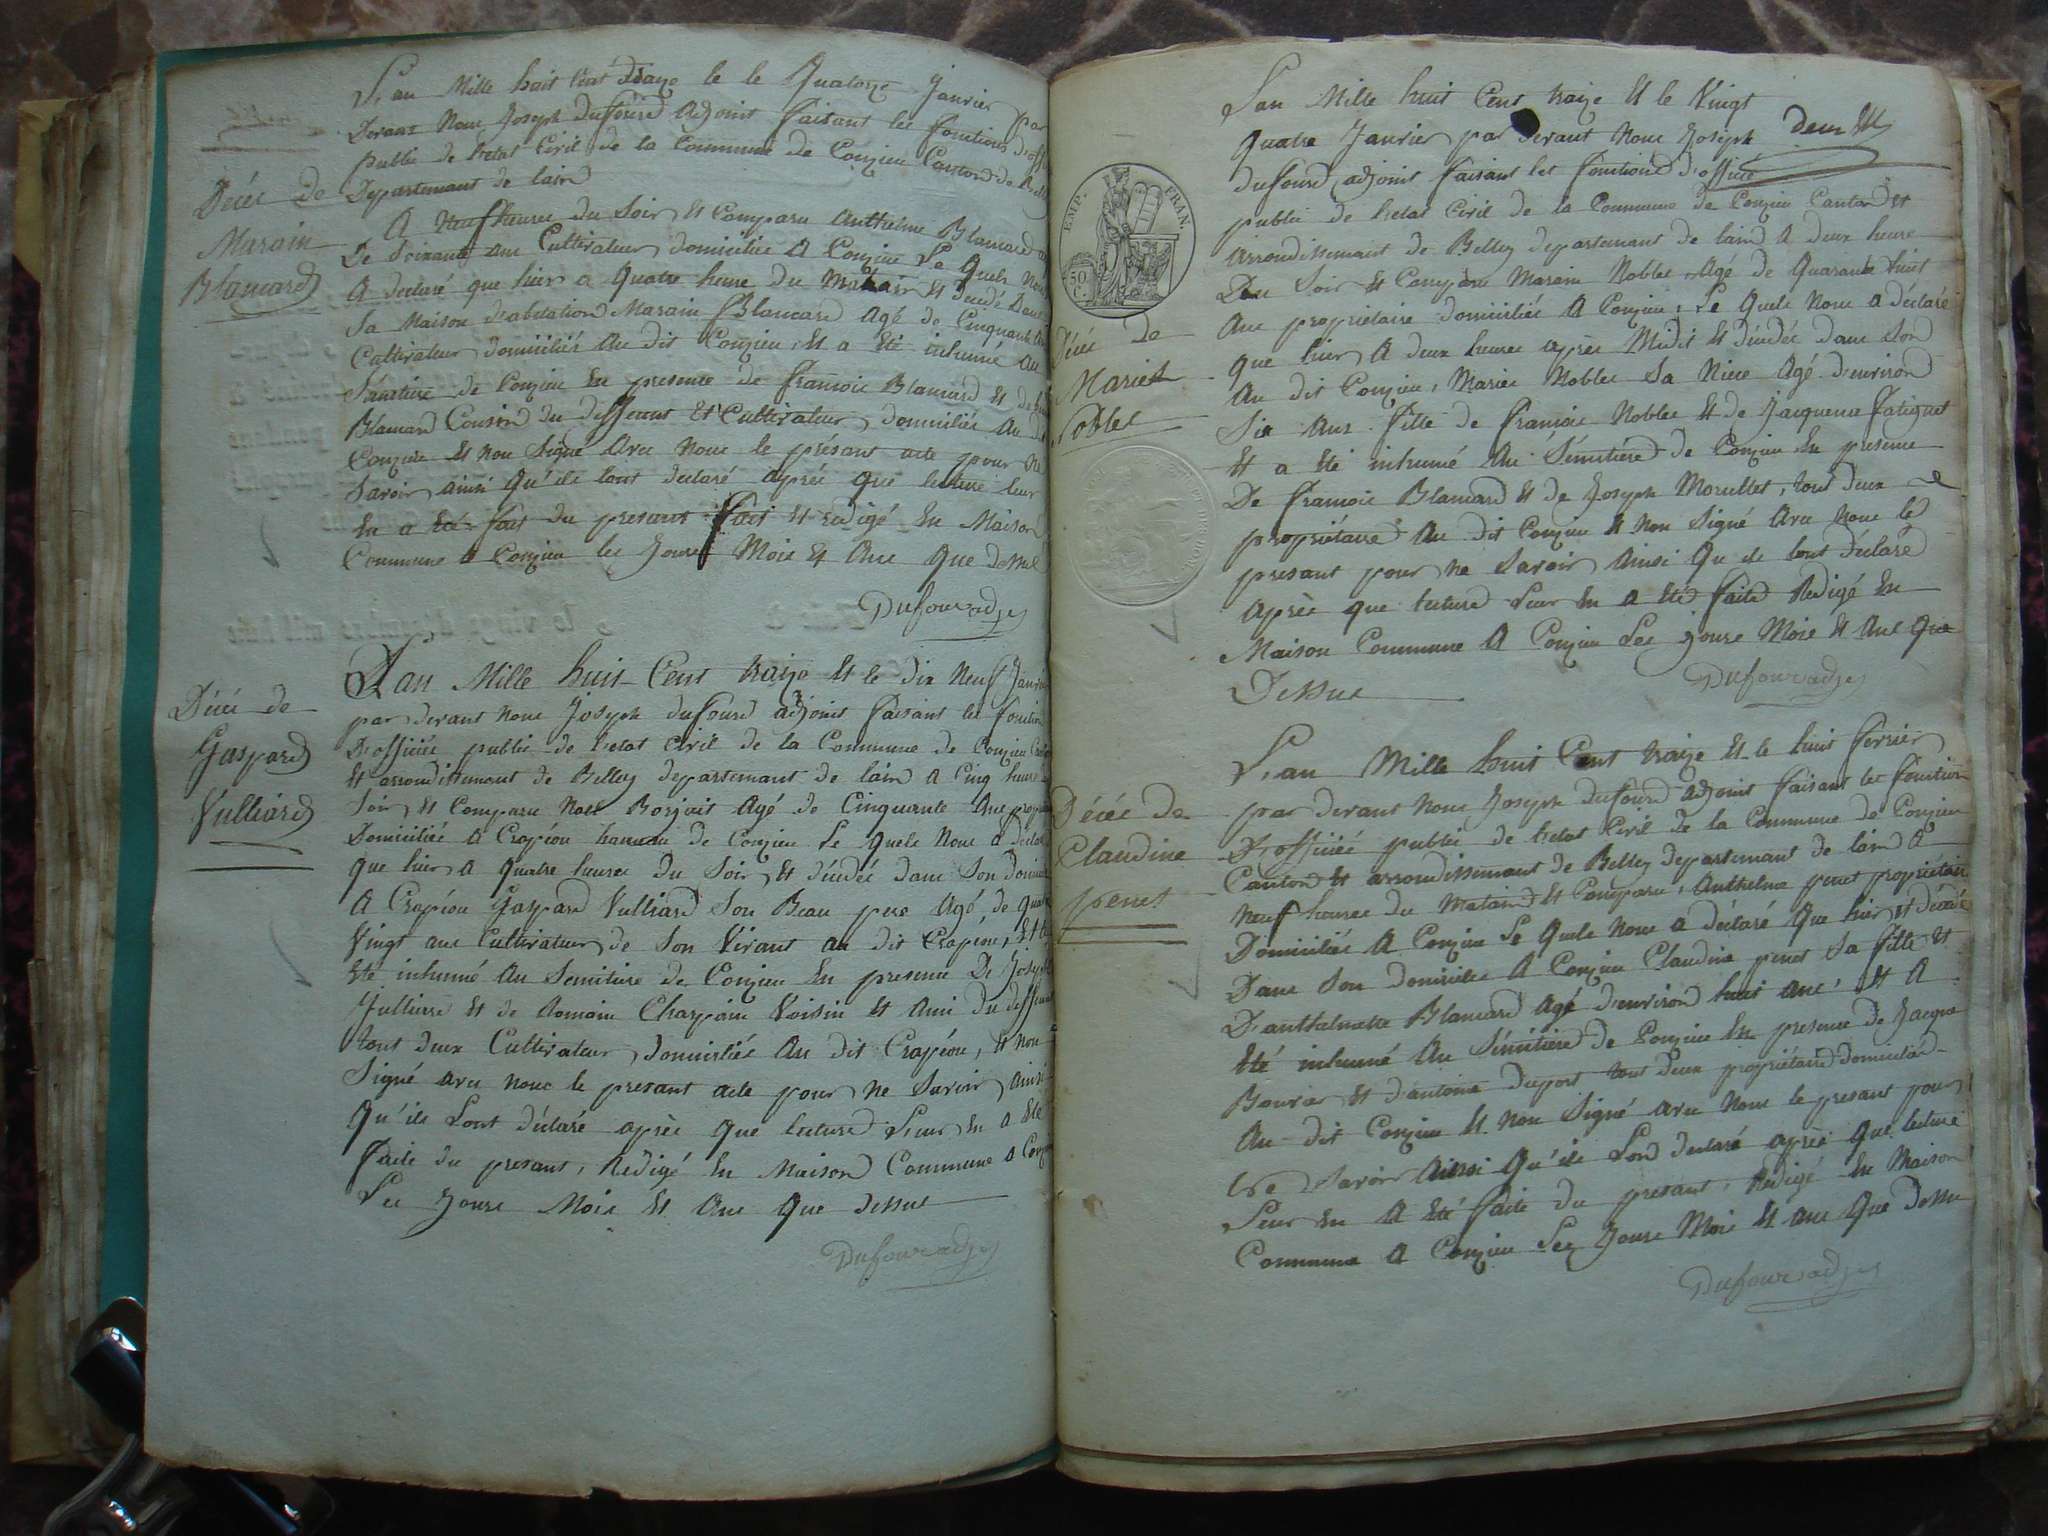 L'an Mille huit Cent Traize le le Quatorze Janvier par
Devant Nous Joseph Dufourd Adjoint faisant les fonctions d'off
public de L'etat Civil de la Commune de Conzieu Canton de Belley
Departement de L'aind
Décès de
Marain
Blancard
A neuf heures du Soir Et Comparu Anthelme Blancard
De Soixante ans Cultivateur domicilié A Conzieu Le Quels Nous
A declaré que hier a Quatre heure du Matin Et décédé Dans
Sa Maison d'abitation Marain Blancard Agé de Cinquante
Cultivateur domiciliés Au dit Conzieu, Et a Eté inhumé Au
Sémitière de Conzieu En presence de françois Blancard Et de
Blancard Cousin du deffunt Et Cultivateur domiciliés Au dit
Conzieu Et non Signé Avec Nous le présant acte pour ne
Savoir ainsi Qu'ils lont declaré après que lecture leur
En a Eté fait du presant fait Et redigé En Maison
Commune a Conzieu les Jours Mois Et Ans que dessus
Dufour adj
Décès de
Gaspard
Vulliard
L'an Mille huit Cent traize Et le dix Neuf Janvier
par devant nous Joseph dufourd adjoint faisant les fonction
D'officiée public de L'etat Civil de la Commune de Conzieu
Et arrondissement de Belley departemant de laind A Cinq heure
Soir Et Comparu Noël Borjait Agé de Cinquante Ans
Domicilié A Crapéou hameau de Conzieu Le Quels Nous a déclaré
Que hier A Quatre heures Du Soir Et décédé dans Son domicile
A Crapéou Gaspard Vulliard Son Beau pere Agé de Quatre
Vingt ans Cultivateur de Son Vivant au dit Crapéou, Et a
Eté inhumé Au Semitiere de Conzieu En presence De Joseph
Julliard Et de Romain Charpain Voisin Et Ami Du deffunt
tout deux Cultivateur domiciliés Au dit Crapéou, Et non
Signé avec nous le presant acte pour ne Savoir Ainsi
Qu'ils Lont déclaré après que lecture Leur En a Eté
Faite du presant, Redigé En Maison Commune A Conzieu
Les Jours Mois Et Ans Que dessus
Dufour adj
L'an Mille huit Cent traize Et le Vingt
Quatre Janvier par devant Nous Joseph
dufourd adjoint faisant les fonctions d'officié
public de L'etat Civil de la Commune de Conzieu Canton Et
arrondissement de Belley departemant de laind A deux heure
EMP. FRAN.
50 C.
Décès de
Mariest
Noblet
Du Soir Et Comparu Marain Noblet Agé de Quarante huit
Ans propriétaire domiciliés A Conzieu, Le Quels Nous a déclaré
Que hier A deux heures après Midit Et décédée dans Son
Au dit Conzieu, Maries Noblet Sa Niece Agé d'environ
Six Ans fille de françois Noblet Et de Jacquema fatiguet
Et a Eté inhumé Au Sémitiere de Conzieu En presence
De françois Blancard Et de Joseph Morellet, tout deux
propriétaire Au dit Conzieu Et Non Signé Avec Nous le
presant pour ne Savoir Ainsi Qu ils lont déclaré
Après que lecture Leur En a Eté faite Redigé En
Maison Commune A Conzieu Les jours Mois Et Ans Que
Dessus
Dufour adj
Décès de
Claudine
penet
L'an Mille huit Cent traize Et le huit ferrier
par devant nous Joseph dufourd adjoint faisant les fonction
D'officiée public de L'etat Civil de la Commune de Conzieu
Canton Et arrondissement de Belley departemant de laind A
Neuf heures du Matain Et Comparu, Anthelme penet propriétaire
Domiciliés A Conzieu Le Quels Nous a déclaré Que hier Et décédé
Dans Son domicile A Conzieu Claudine penet Sa fille Et
D'anthelmette Blancard Agé d'environ huit Ans, Et A
Eté inhumé Au Sémitière de Conzieu En presence de Jacque
Bouvier Et d'antoine duport tout deux propriétaire domiciliés
Au dit Conzieu Et non Signé avec Nous le presant pour
Ne Savoir Ainsi Qu'ils Lon declaré après Que lecture
Leur En A Eté faite du presant, Redigé En Maison
Commune A Conzieu Les Jours Mois Et ans Que dessus
Dufour adj